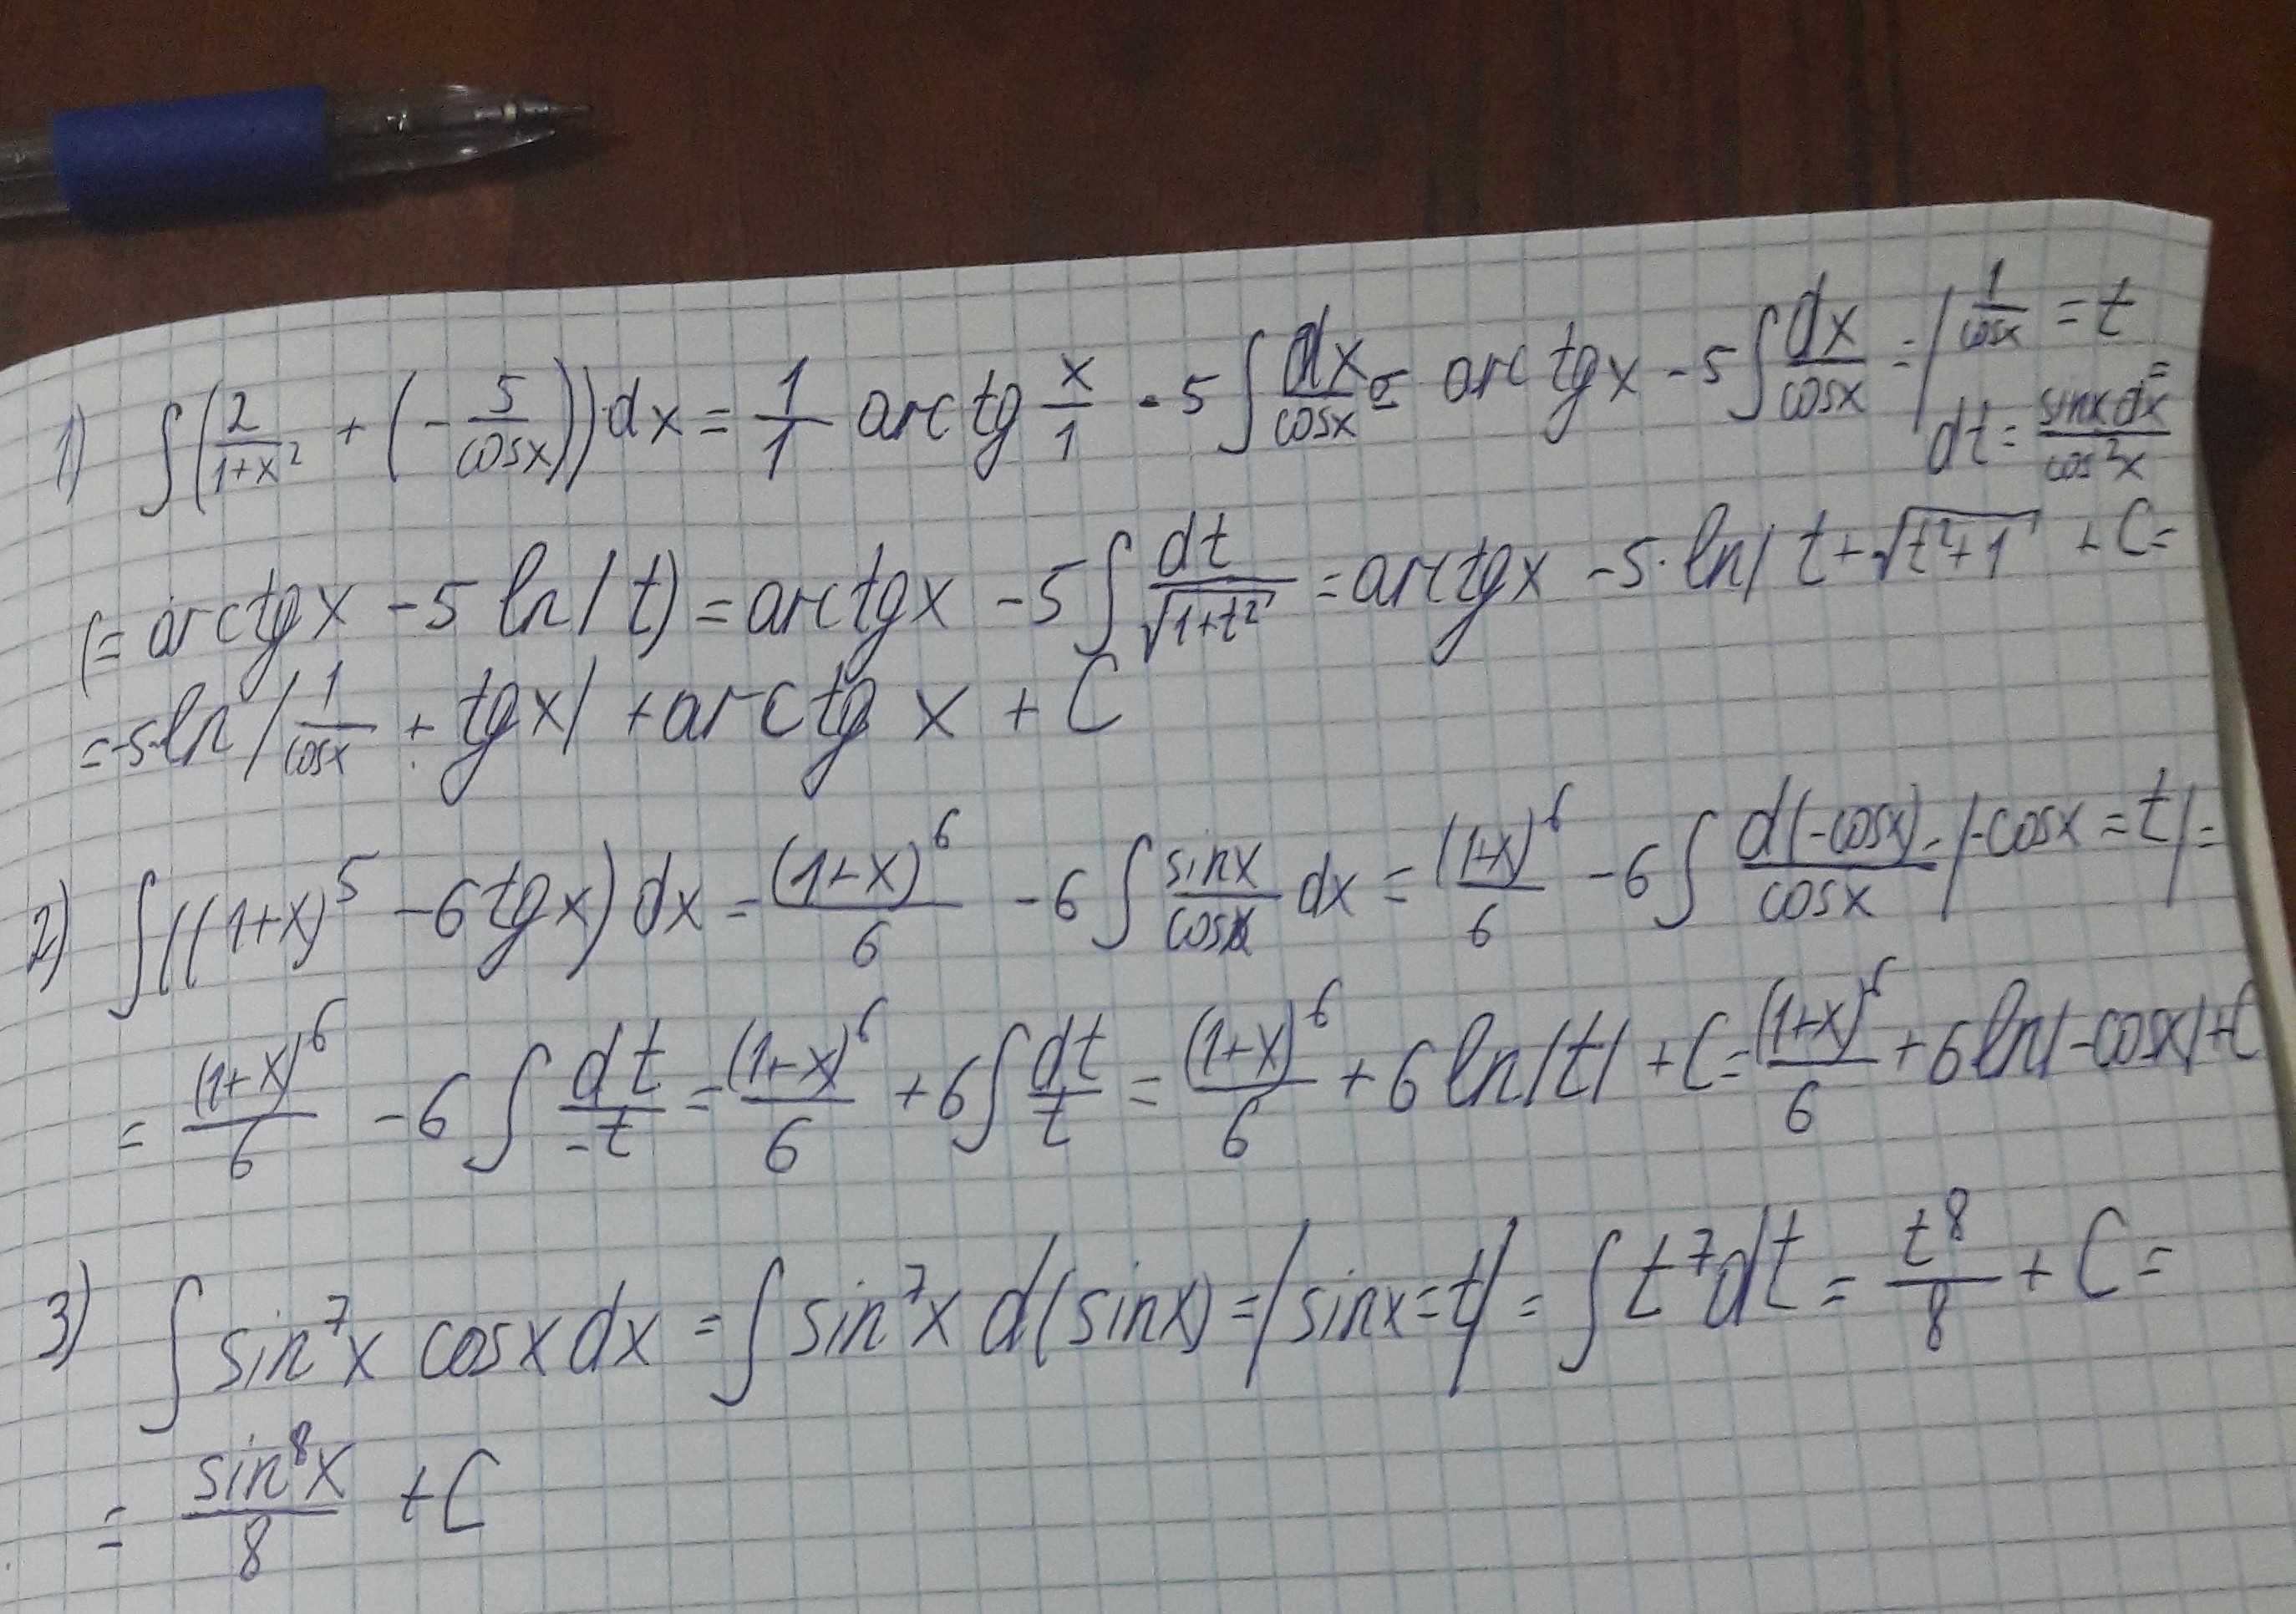 1) ∫(2/(1+x²) + (-5/cosx))dx = 1/1 arctg x/1 - 5∫dx/cosx = arctgx - 5∫dx/cosx = | 1/cosx = t
dt = sinxdx/cos²x =
(= arctgx - 5 ln|t) = arctgx - 5∫dt/√(1+t²) = arctgx - 5·ln|t+√(t²+1) + C =
= -5·ln|1/cosx + tgx| + arctg x + C
2) ∫((1+x)⁵ - 6tgx)dx = (1+x)⁶/6 - 6∫sinx/cosx dx = (1+x)⁶/6 - 6∫d(-cosx)/cosx = |-cosx = t| =
= (1+x)⁶/6 - 6∫dt/-t = (1+x)⁶/6 + 6∫dt/t = (1+x)⁶/6 + 6ln|t| + C = (1+x)⁶/6 + 6ln|-cosx| + C
3) ∫sin⁷x cosxdx = ∫sin⁷x d(sinx) = |sinx = t| = ∫t⁷dt = t⁸/8 + C =
= sin⁸x/8 + C